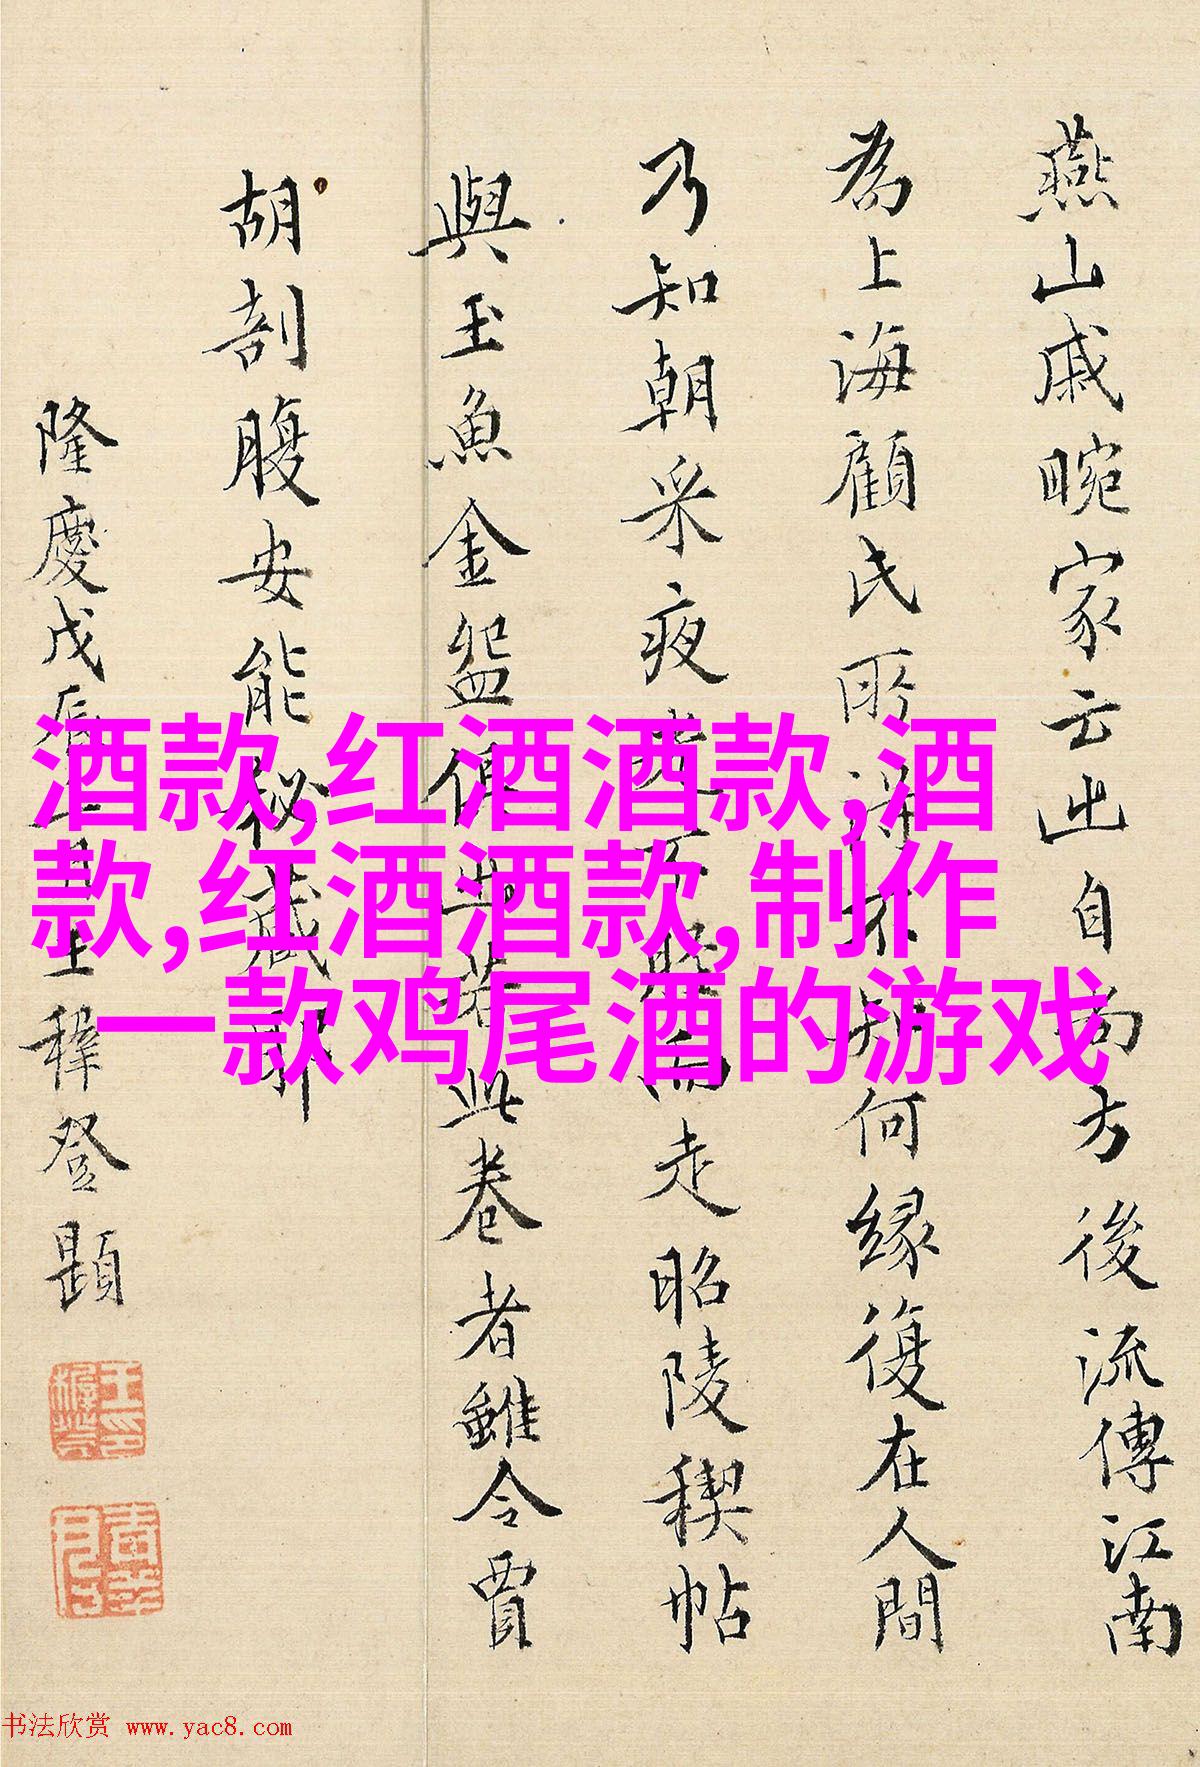 燕山戚畹家云出自尚方後流傳江南
為上海顧氏所得不知何緣復在人間
乃知朝采夜而走昭陵稧帖
與玉魚金盌俱出若此卷者雖令賈
胡剖腹安能秘藏耶
隆慶戊辰王穉登題
酒款,红酒酒款,酒
款,红酒酒款,制作
一款鸡尾酒的游戏
书法欣赏 www.yac8.com